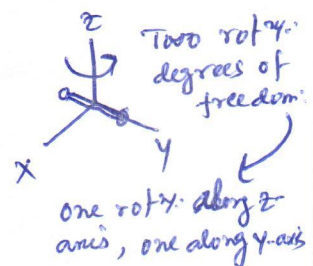 z
Two rotⁿ.
degrees of
freedom:
X
Y
one rotⁿ. along z-
axis, one along y-axis